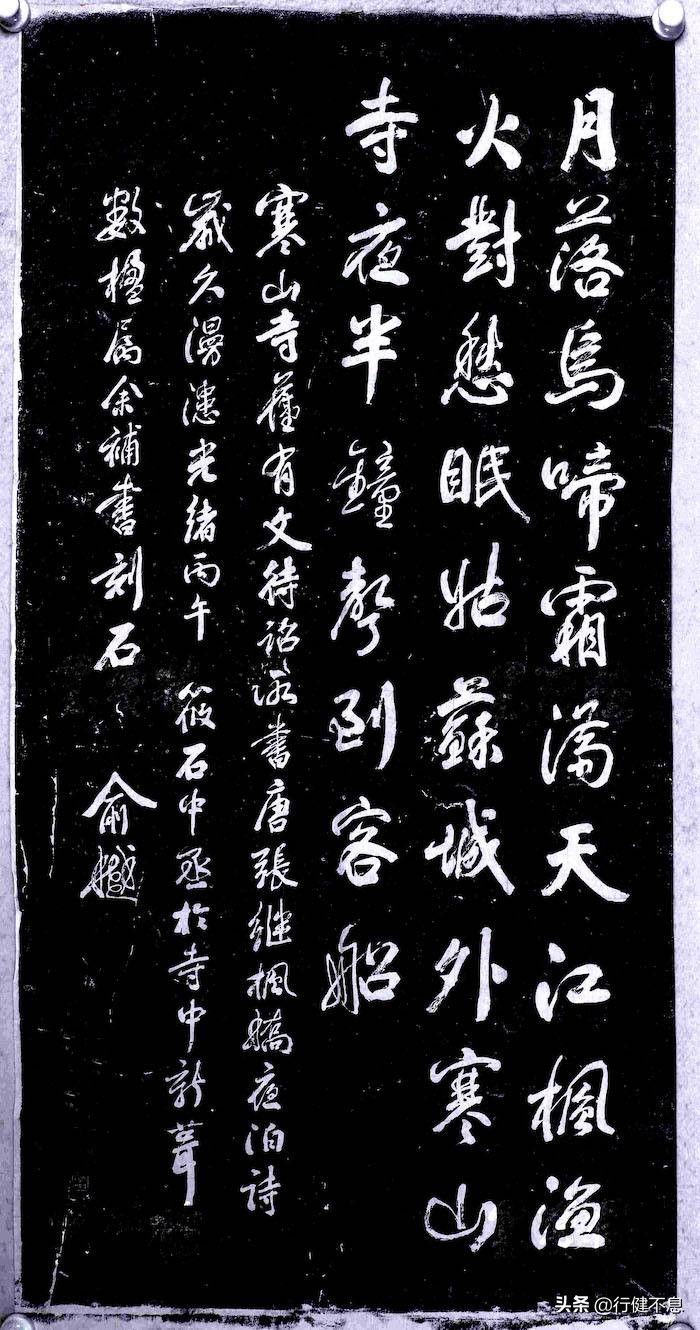 月落烏啼霜滿天江楓漁
火對愁眠姑蘇城外寒山
寺夜半鐘聲到客船
寒山寺舊有文待詔所書唐張継楓橋夜泊詩
歲久漫漶光緒丙午筱石中丞於寺中新葺
數楹屬余補書刻石
俞樾
头条 @行健不息